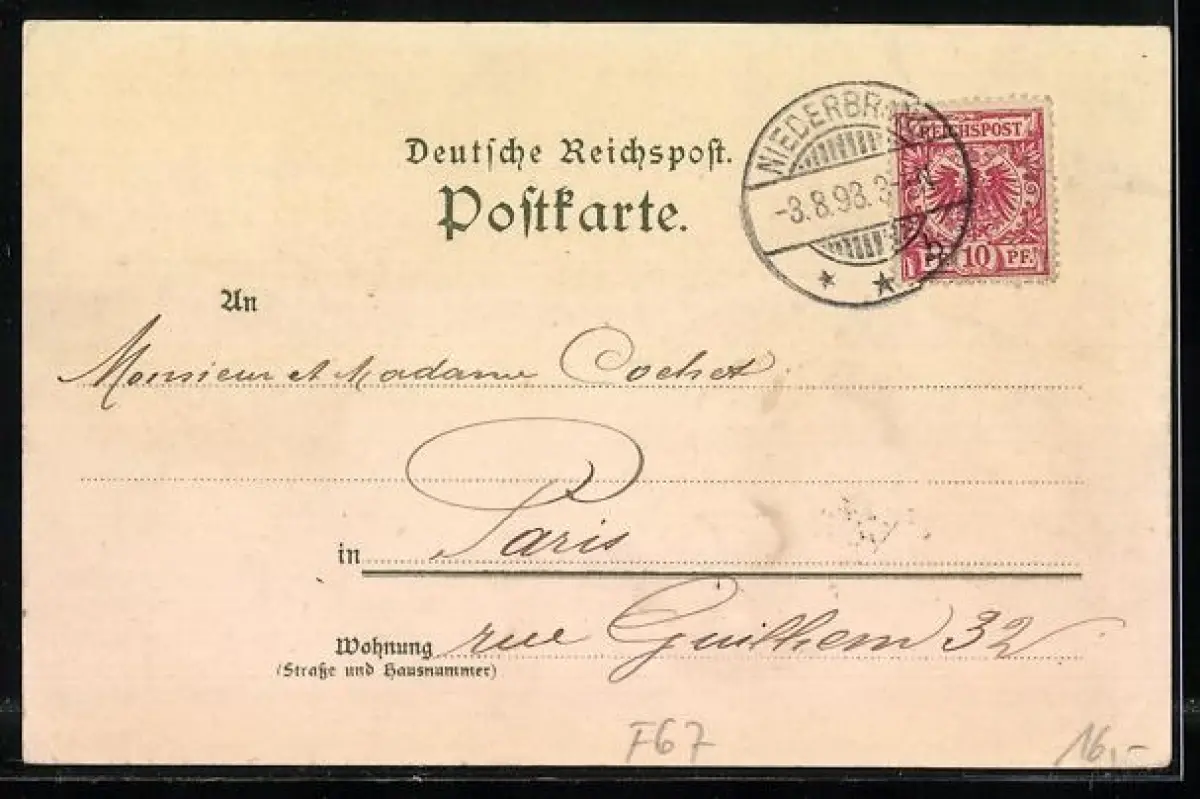 Deutsche Reichspost.
Postkarte.
NIEDERBR
-3.8.98.3-
b
REICHSPOST
PF 10 PF.
An
Monsieur et Madame Cochet
in Paris
Wohnung rue Guilhem 32
(Straße und Hausnummer)
F67
16,-